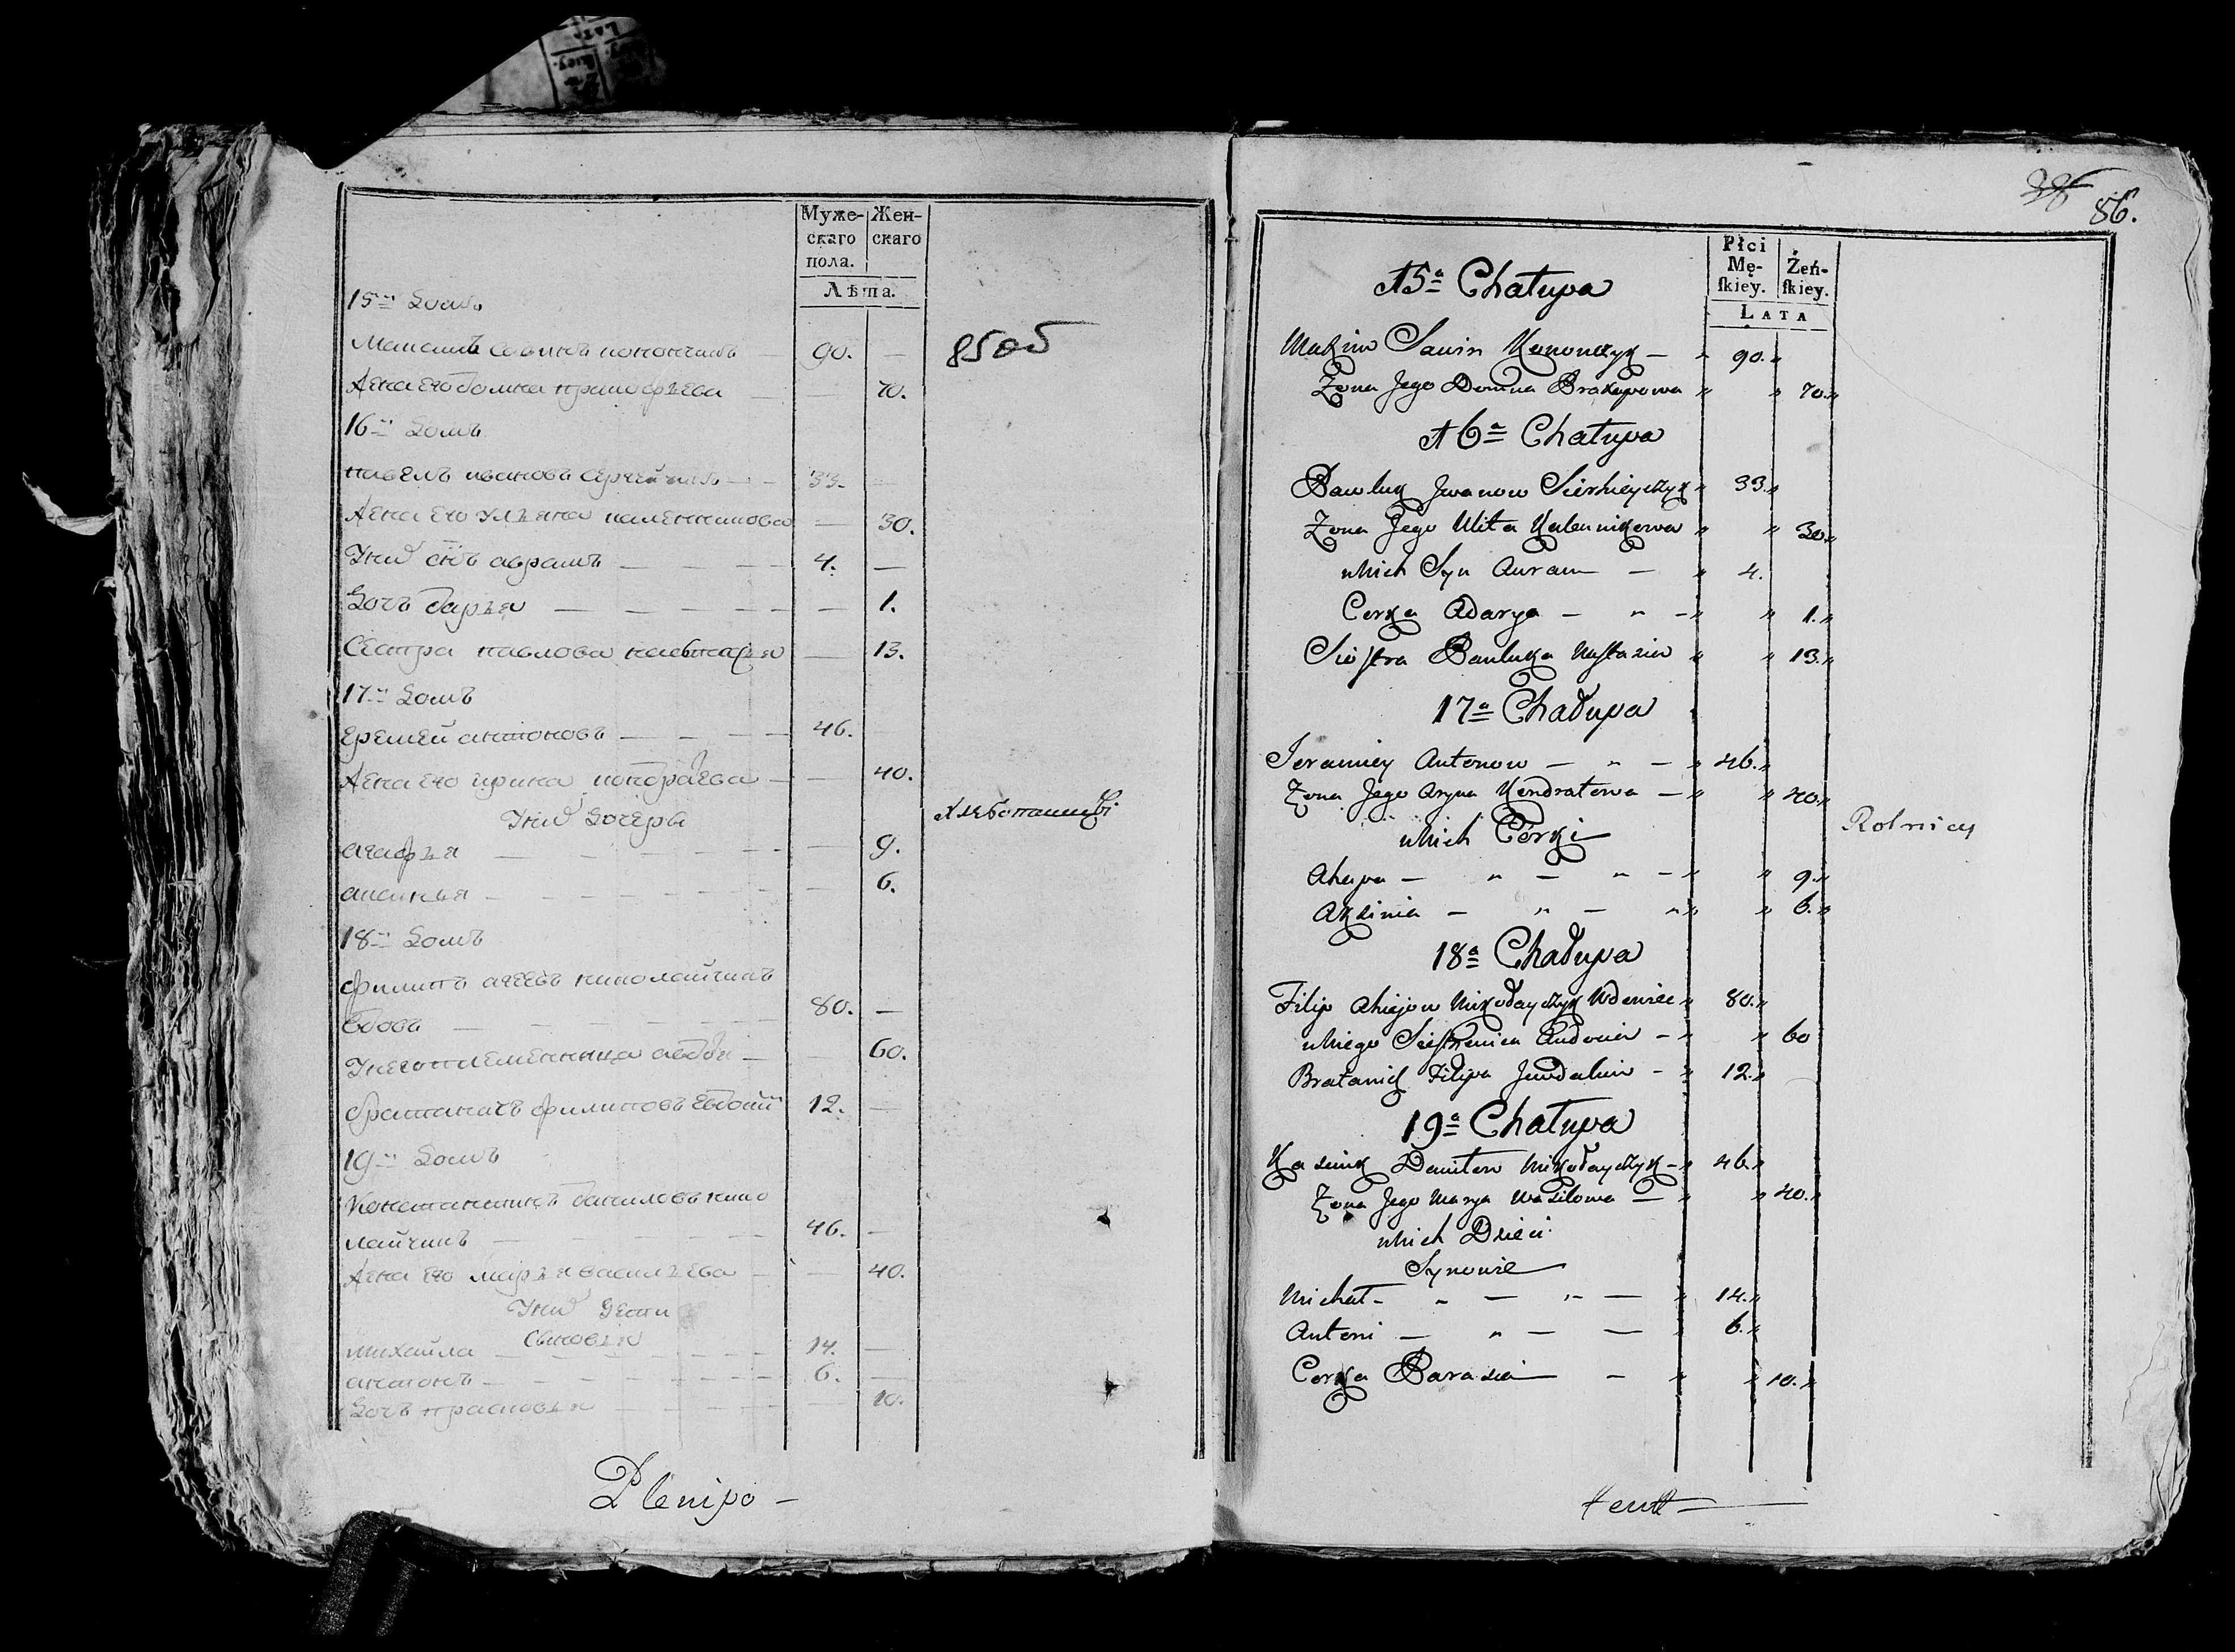 Муже-
скаго
пола.
Жен-
скаго
Лѣта.
15й Домъ
Максимъ Савинъ конончикъ — 90. —
Жена его домна прокофьева — — 70.
16й Домъ
павелъ ивановъ сергейчикъ — 33. —
Жена его ульяна каленикова — 30.
У нихъ сынъ аврамъ — — — — 4. —
Дочь дарья — — — — — — 1.
Сестра павлова настасья — 13.
17й Домъ
еремей антоновъ — — — — 46.
Жена его ирина кондратьева — — 40.
У нихъ Дочери
агафья — — — — — — 9.
аксинья — — — — — — — 6.
Хлебопашцы
18й Домъ
филипъ агеевъ николайчикъ
вдовъ — — — — — — 80. —
У него племенница авдотья — 60.
братаничъ филиповъ евдоким 12. —
19й Домъ
Константинъ даниловъ нико
лайчикъ — — — — — 46. —
Жена его марья васильева — — 40.
У нихъ дети
Сыновья
михайла — — — — — 14. —
антонъ — — — — — — — 6. —
Дочь прасковья — — — — 10.
Plenipo —
86.
Płci
Mę-
ſkiey.
Żeń-
ſkiey.
LATA
15a Chałupa
Maxim Sawin Kononczyk — „ 90. „
Żona Jego Domna Prakopowa „ „ 70. „
16a Chałupa
Pawluk Jwanow Sierhieyczyk „ 33. „
Żona Jego Ulita Kalenikowa „ „ 30. „
u nich Syn Auram — „ 4.
Corka Adarya — „ — „ „ 1. „
Siostra Pauluka Nastazia „ „ 13. „
17a Chałupa
Jeramiey Antonow — „ — „ 46. „
Żona Jego Aryna Kondratowa — „ „ 40. „
u nich Córki
Ahapa — „ — „ — „ „ 9. „
Axinia — „ — „ „ „ 6. „
Rolnicy
18a Chałupa
Filip Ahiejow Mikołayczyk Wdowiec „ 80. „
u Niego Siestrzenica Audocia — „ „ 60
Bratanick Filipa Jewdakim — „ 12. „
19a Chałupa
Kaziuk Daniłow Mikołayczyk — „ 46. „
Żona Jego Marya Wasilowa — „ „ 40. „
u nich Dzieci
Synowie
Michał — „ — „ — „ 14. „
Antoni — „ — — „ 6. „
Corka Parasia — — „ „ 10. „
tent —